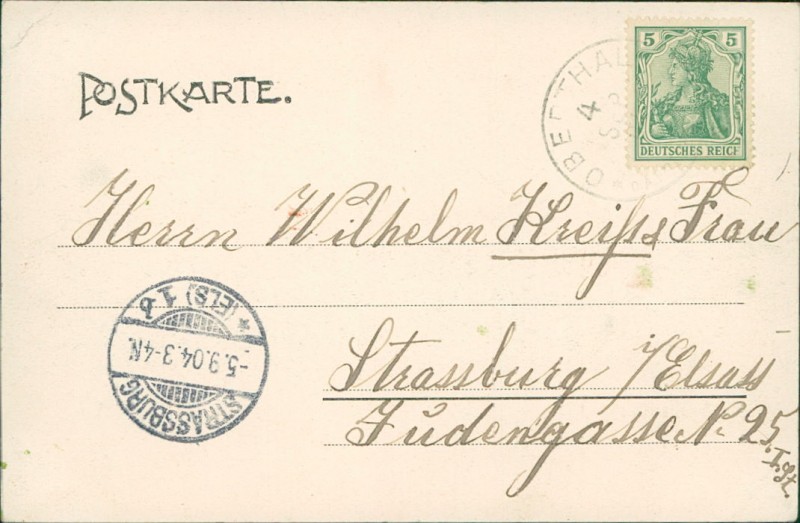 POSTKARTE.
OBERTHAL
4
5 5
DEUTSCHES REICH
Herrn Wilhelm Kreiss & Frau
STRASSBURG
* (ELS) 1 b
-5.9.04.3-4N.
Strassburg i/Elsass
Judengasse N. 25.
I. St.